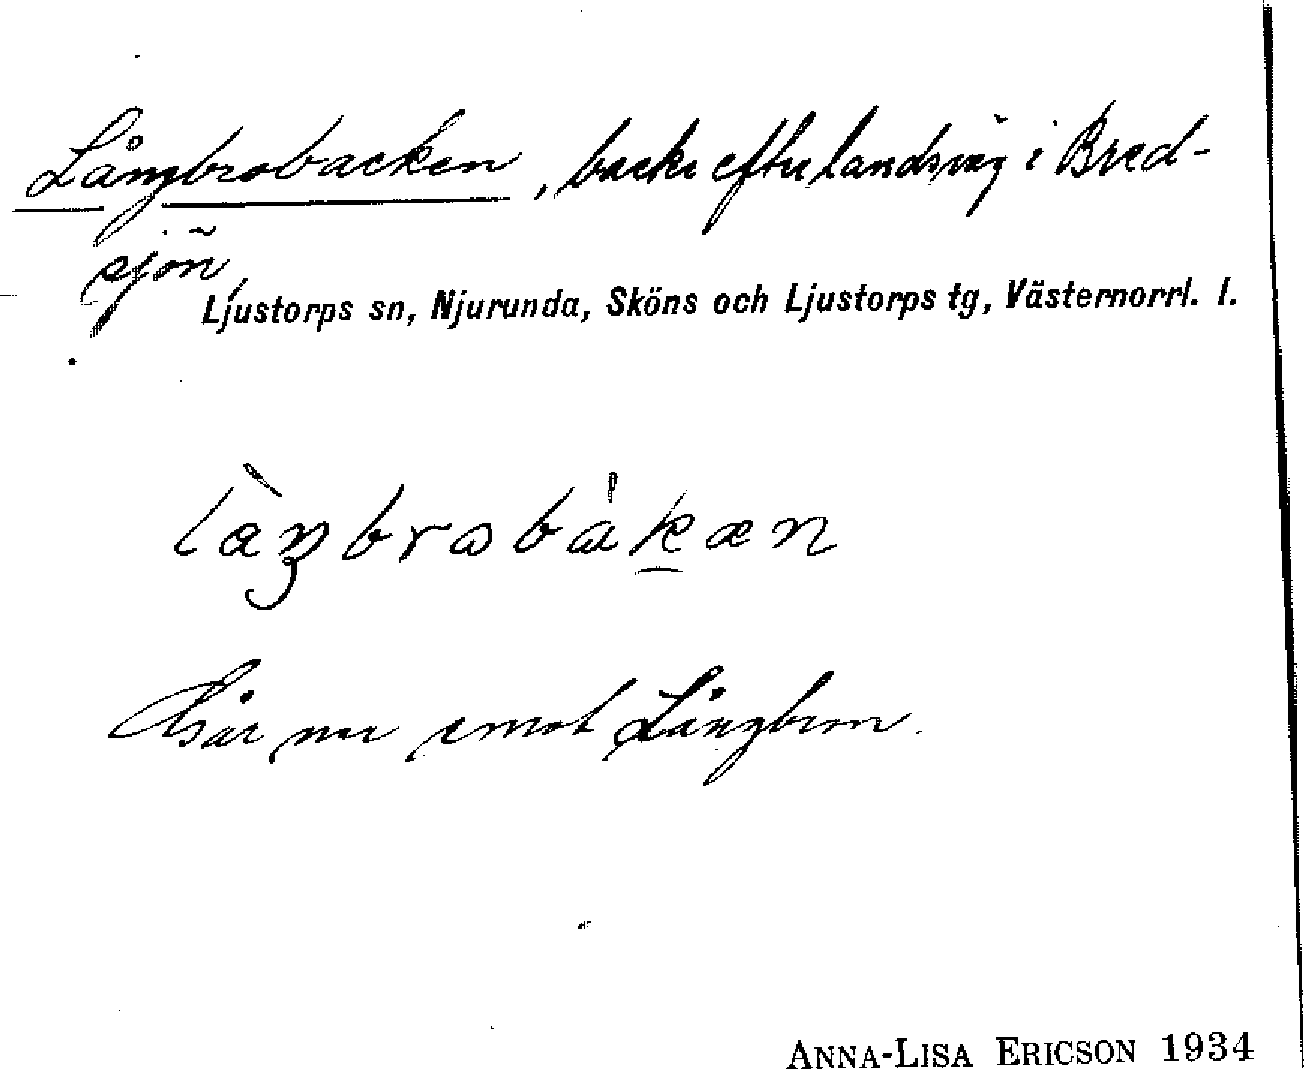 Långbrobacken, backe efter landsväg i Bred-
sjön,
Ljustorps sn, Njurunda, Sköns och Ljustorps tg, Västernorrl. l.
làŋbrobákæn
ner emot Långbron.
ANNA-LISA ERICSON 1934